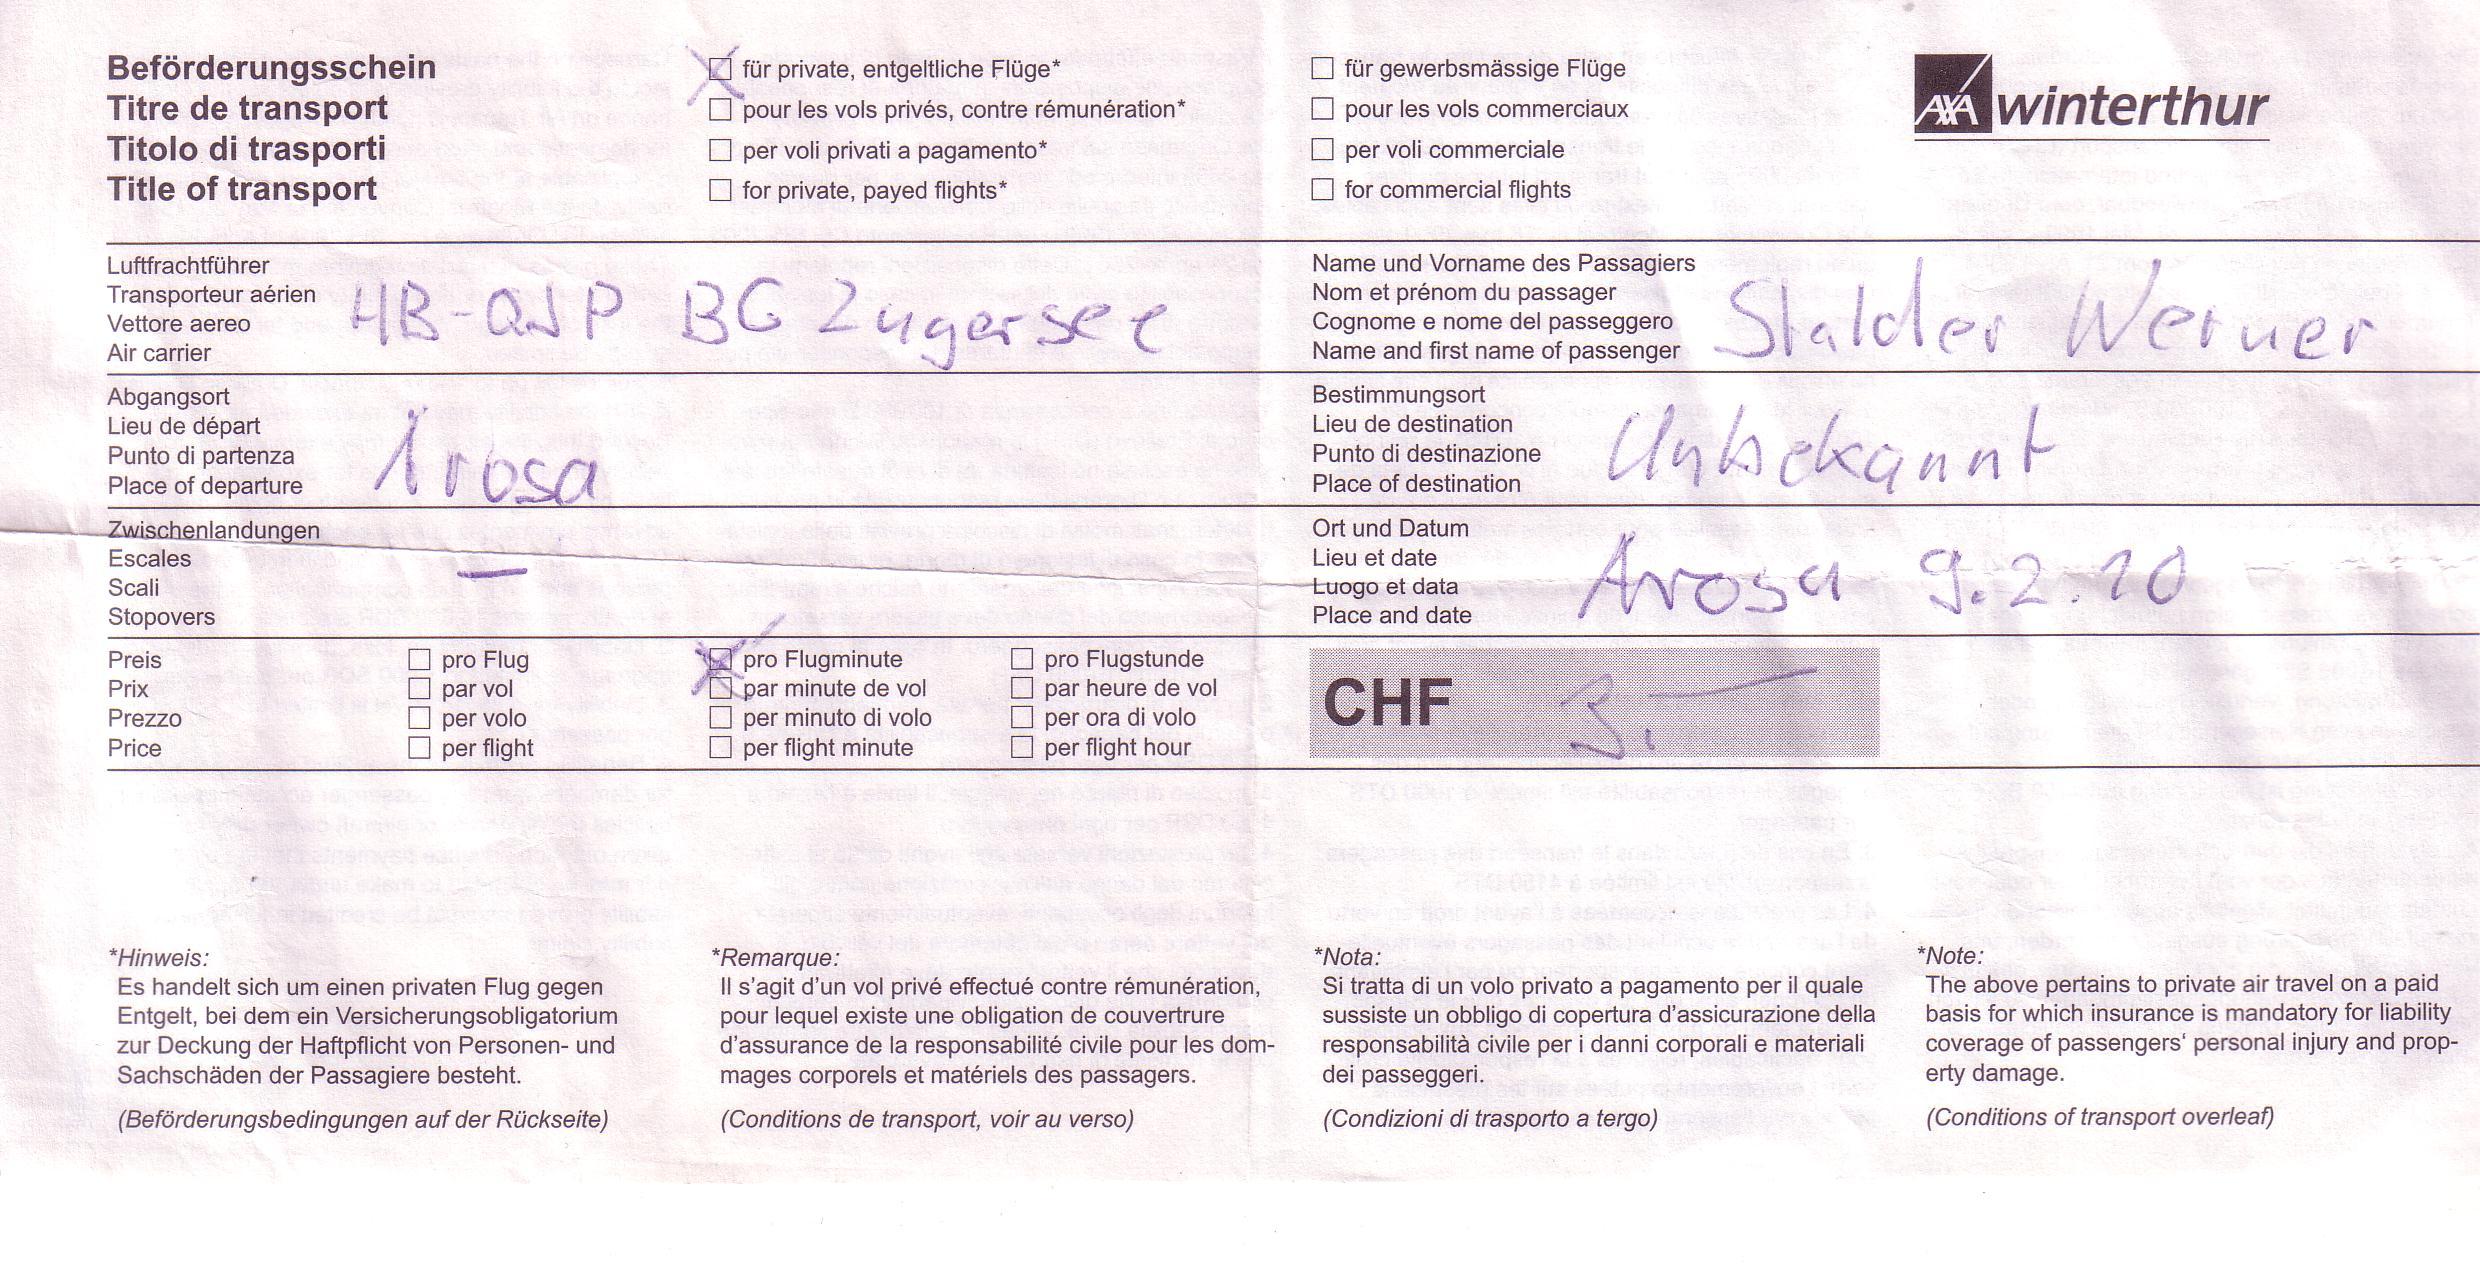 Beförderungsschein
Titre de transport
Titolo di trasporti
Title of transport
für private, entgeltliche Flüge*
pour les vols privés, contre rémunération*
per voli privati a pagamento*
for private, payed flights*
für gewerbsmässige Flüge
pour les vols commerciaux
per voli commerciale
for commercial flights
AXA winterthur
Luftfrachtführer
Transporteur aérien
Vettore aereo
Air carrier
HB-QJP BG Zugersee
Name und Vorname des Passagiers
Nom et prénom du passager
Cognome e nome del passeggero
Name and first name of passenger
Stalder Werner
Abgangsort
Lieu de départ
Punto di partenza
Place of departure
Arosa
Bestimmungsort
Lieu de destination
Punto di destinazione
Place of destination
Unbekannt
Zwischenlandungen
Escales
Scali
Stopovers
—
Ort und Datum
Lieu et date
Luogo et data
Place and date
Arosa 9.2.10
Preis
Prix
Prezzo
Price
pro Flug
par vol
per volo
per flight
pro Flugminute
par minute de vol
per minuto di volo
per flight minute
pro Flugstunde
par heure de vol
per ora di volo
per flight hour
CHF 3.—
*Hinweis:
Es handelt sich um einen privaten Flug gegen
Entgelt, bei dem ein Versicherungsobligatorium
zur Deckung der Haftpflicht von Personen- und
Sachschäden der Passagiere besteht.
(Beförderungsbedingungen auf der Rückseite)
*Remarque:
Il s'agit d'un vol privé effectué contre rémunération,
pour lequel existe une obligation de couvertrure
d'assurance de la responsabilité civile pour les dom-
mages corporels et matériels des passagers.
(Conditions de transport, voir au verso)
*Nota:
Si tratta di un volo privato a pagamento per il quale
sussiste un obbligo di copertura d'assicurazione della
responsabilità civile per i danni corporali e materiali
dei passeggeri.
(Condizioni di trasporto a tergo)
*Note:
The above pertains to private air travel on a paid
basis for which insurance is mandatory for liability
coverage of passengers' personal injury and prop-
erty damage.
(Conditions of transport overleaf)